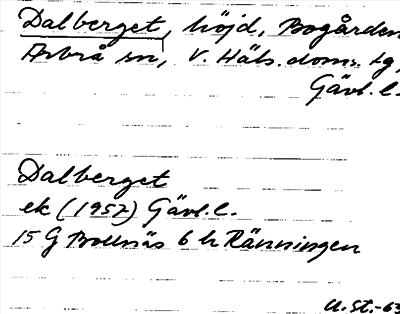 Dalberget, höjd, Bogården
Arbrå sn, V. Häls. doms. tg,
Gävl. l.
Dalberget
ek (1952) Gävl. l.
15 G Bollnäs 6 h Ränningen
U.St.-63